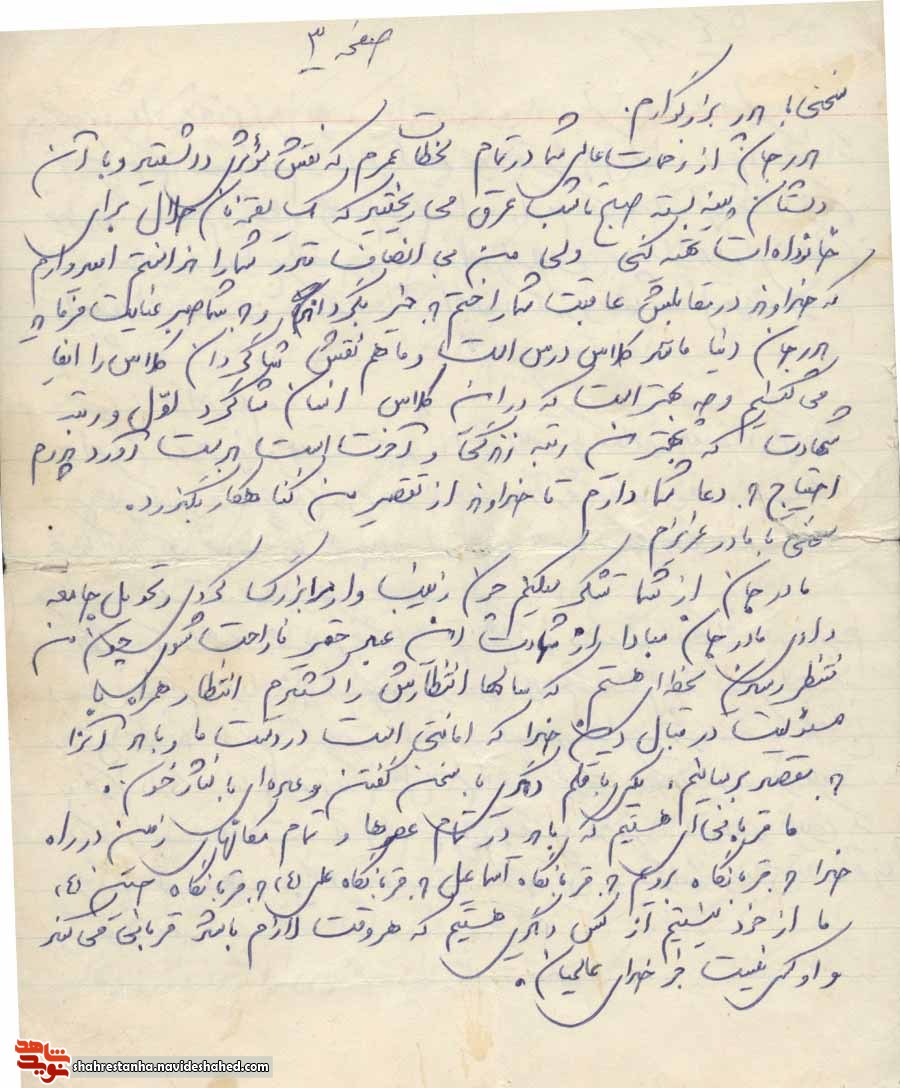 صفحه ۳
سخنی با پدر بزرگوارم.
پدر جان از زحمات عالی شما در تمام لحظات عمرم که نقش مؤثری داشتید و با آن
دستان پینه بسته صبح تا شب عرق می ریختید که یک لقمه نان حلال برای
خانواده ات تهیه کنی ولی من بی انصاف قدر شما را ندانستم امیدوارم
که خداوند در مقابلش عاقبت شما را ختم به خیر بگرداند و به شما صبر عنایت فرماید
پدر جان دنیا مانند کلاس درس است و ما هم نقش شاگردان کلاس را ایفا
می کنیم و چه بهتر است که در این کلاس انسان شاگرد اول و رتبه
شهادت که بهترین رتبه زندگی و آخرت است بدست آورد پدرم
احتیاج به دعا شما دارم تا خداوند از تقصیر من گناهکار بگذرد.
سخنی با مادر عزیزم
مادر جان از شما تشکر میکنم چون زینب وار مرا بزرگ کردی و تحویل جامعه
دادی مادر جان مبادا از شهادت این عبد حقیر ناراحت شوی چون من
منتظر رسیدن لحظه ای هستم که سالها انتظارش را کشیدم انتظار همراه با
مسؤلیت در قبال دین خدا که امانتی است در دست ما و باید آنرا
به مقصد برسانیم، یکی با قلم دیگری با سخن گفتن و عده ای با نثار خون.
ما قربانی ای هستیم که باید در تمام عصرها و تمام مکانهای زمین در راه
خدا به قربانگاه برویم به قربانگاه اسماعیل به قربانگاه علی (ع) به قربانگاه حسین (ع)
ما از خود نیستیم از کس دیگری هستیم که هر وقت لازم باشد قربانی می کند
و او کسی نیست جز خدای عالمیان.
نوید شاهد
shahrestanha.navideshahed.com